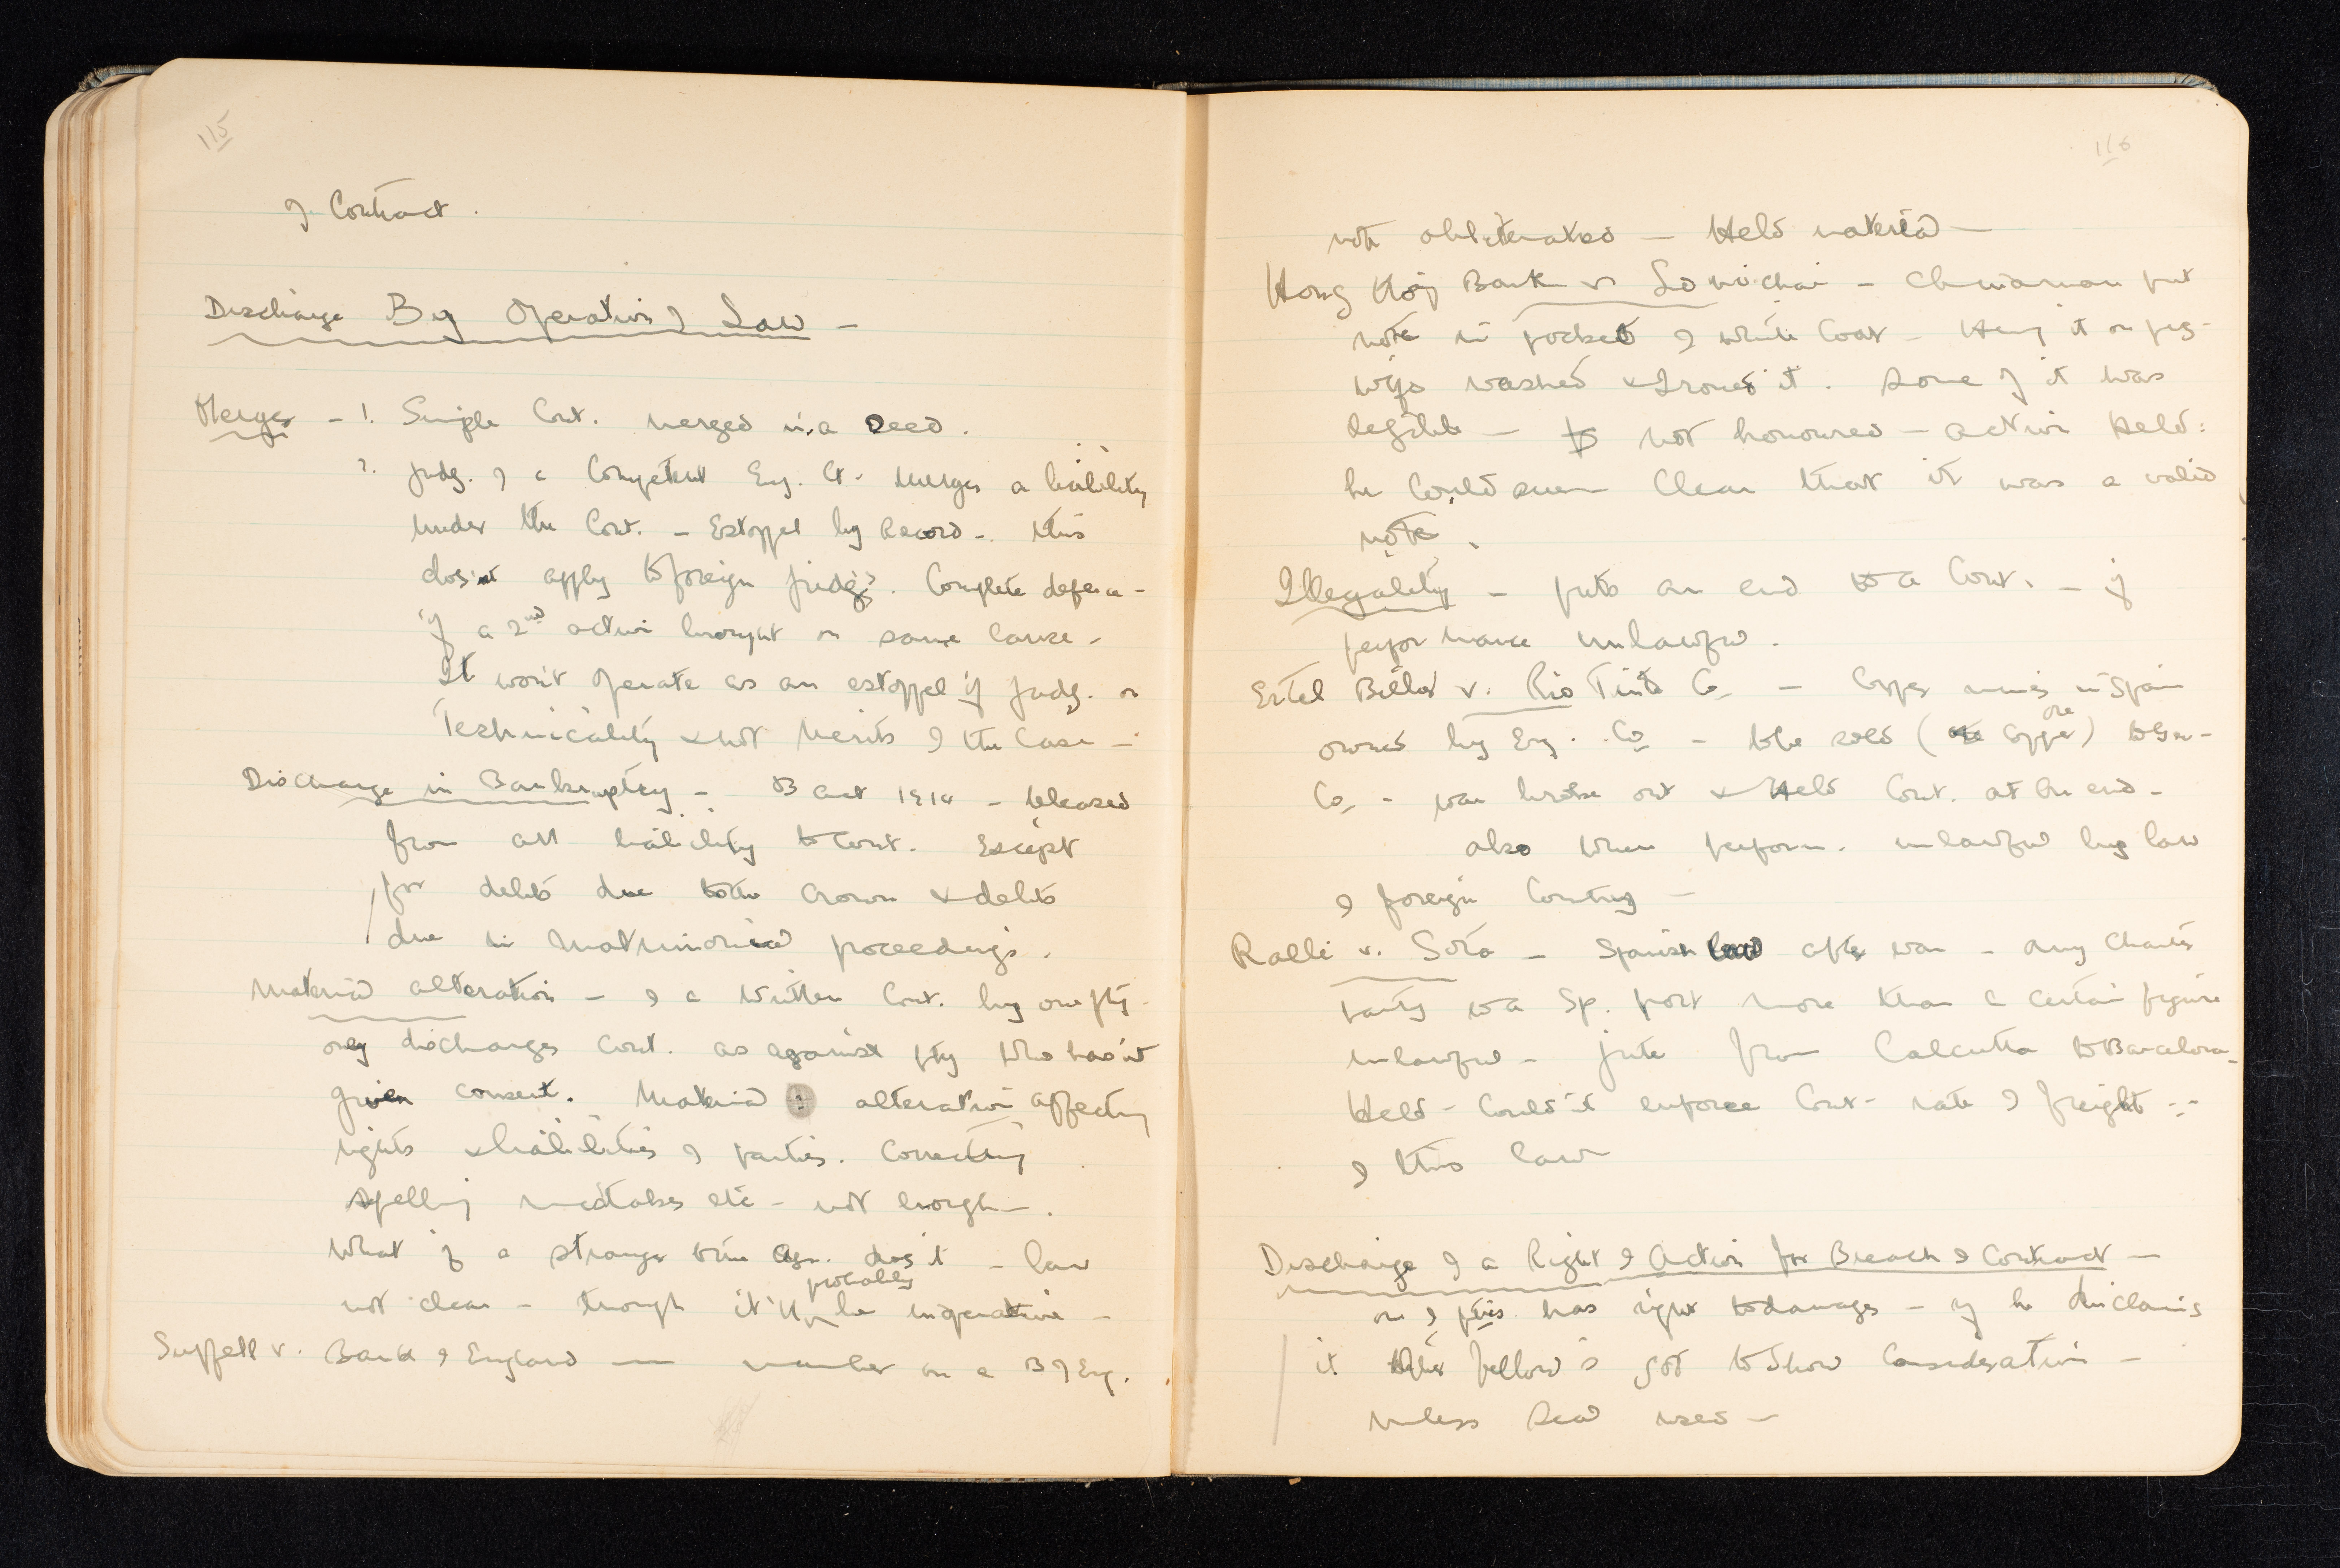 115
of Contract.
Discharge By Operation of Law –
Merger – 1. Simple Cont. merged in a Deed.
2. Judg. of a Competent Eng. Ct. merges a liability
under the Cont. – Estoppel by Record –. This
does'nt apply to foreign judgs. Complete defence –
if a 2nd action brought on same cause –
It won't operate as an estoppel if judg. on
Technicality & not Merits of the Case –
Discharge in Bankruptcy – B act 1914 – released
from all liability to Cont. Except
for debts due to the Crown & debts
due in matrimonial proceedings.
Material alteration – of a written Cont. by one pty
only discharges Cont. as against pty who has'nt
given consent. Material : alteration affecting
rights & liabilities of parties. Correcting
spelling mistakes etc – not enough –.
What if a stranger to the agr. does it – law
not clear – though it'll probably be inoperative –
Suffell v. Bank of England — number on a B of Eng.
116
note obliterated – Held material –
Hong Kong Bank v Lo – Chinaman put
note in pocket of white Coat – Hung it on peg –
wife washed & Ironed it. Some of it was
legible – not honoured – action held:
he could clear that it was a valid
note.
Illegality – puts an end to a Cont. – if
performance unlawful.
Ertel Bieber v. Rio Tinto Co – Copper mines in Spain
owned by Eng. Co – to be sold (Copper ore) to Ger –
Co – war broke out & Held Cont. at an end –
also when perform. unlawful by law
of foreign Country –
Ralli v. Sota – Spanish law after war – any Charter
Party to a Sp. port more than a certain figure
unlawful – jute from Calcutta to Barcelona –
Held – Could'nt enforce Cont – rate of freight ∵
of this law
Discharge of a Right of Action for Breach of Contract –
one of ptys has right to damages – if he disclaims
it other fellow's got to show Consideration –
unless Deed used –